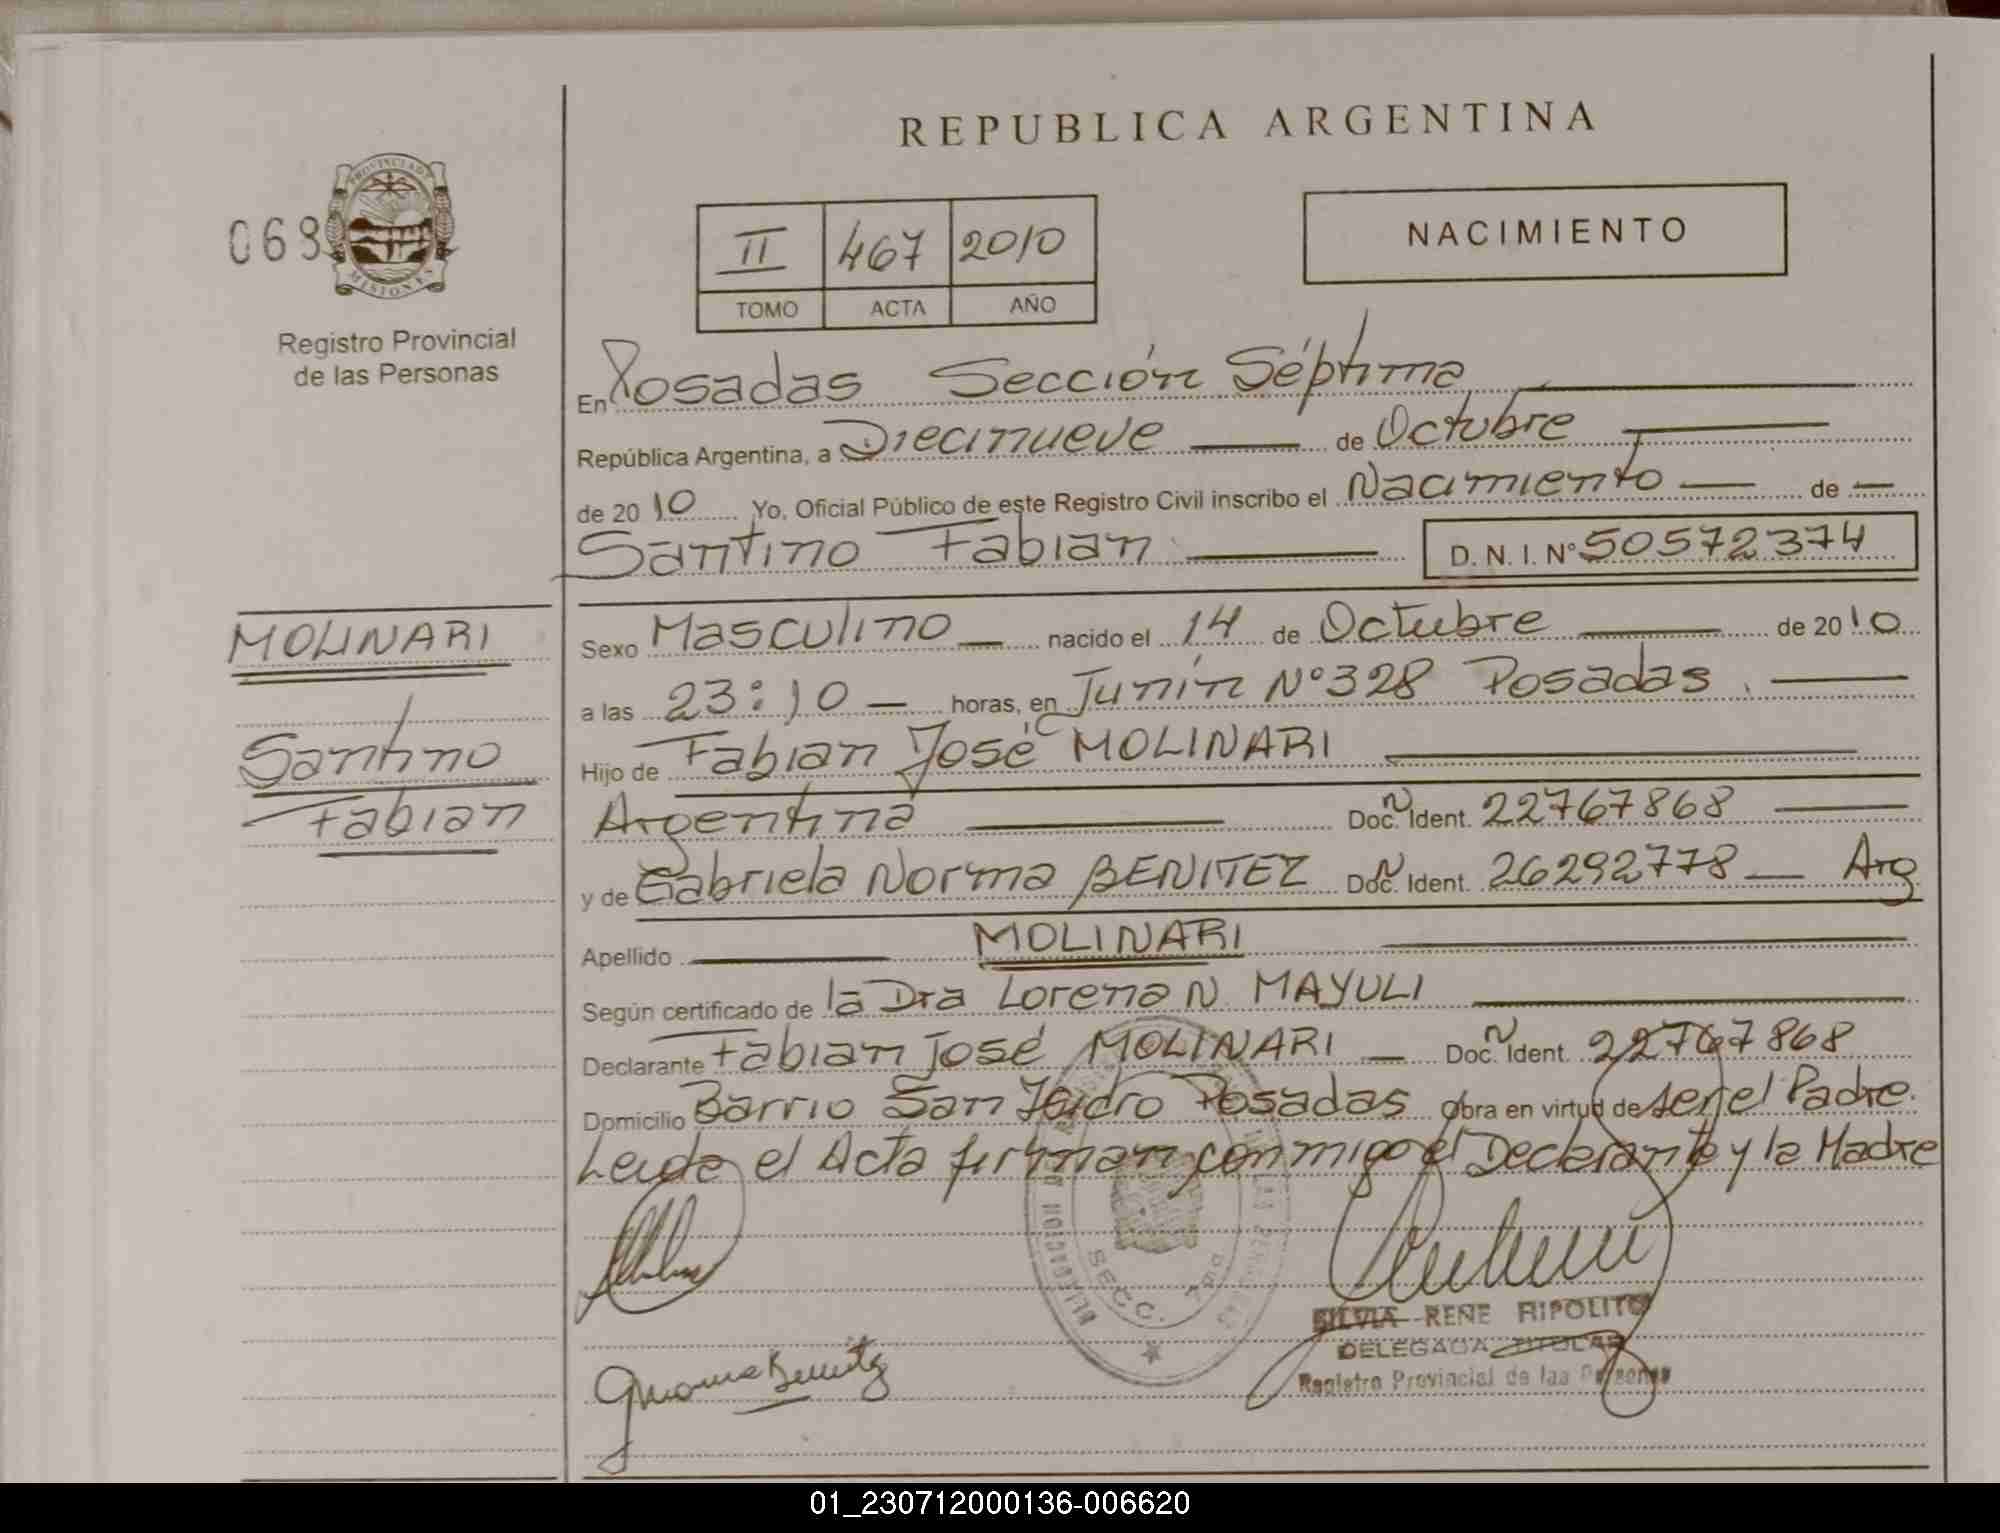 REPUBLICA ARGENTINA
069
PROVINCIA DE MISIONES
Registro Provincial
de las Personas
II 467 2010
TOMO ACTA AÑO
NACIMIENTO
En Posadas Sección Séptima
República Argentina, a Diecinueve de Octubre
de 2010 Yo, Oficial Público de este Registro Civil inscribo el Nacimiento de
Santino Fabian D. N. I. Nº 50572374
MOLINARI
Santino
Fabian
Sexo Masculino nacido el 14 de Octubre de 2010
a las 23:10 horas, en Junín Nº 328 Posadas
Hijo de Fabian José MOLINARI
Argentina Doc. Ident. 22767868
y de Gabriela Norma BENITEZ Doc. Ident. 26292778 Arg
Apellido MOLINARI
Según certificado de la Dra Lorena N. MAYULI
Declarante Fabian José MOLINARI Doc. Ident. 22767868
Domicilio Barrio San Isidro Posadas obra en virtud de ser el Padre.
Leida el Acta firman conmigo el Declarante y la Madre
SECC.
SILVIA RENE RIPOLITO
DELEGADA TITULAR
Registro Provincial de las Personas
01_230712000136-006620